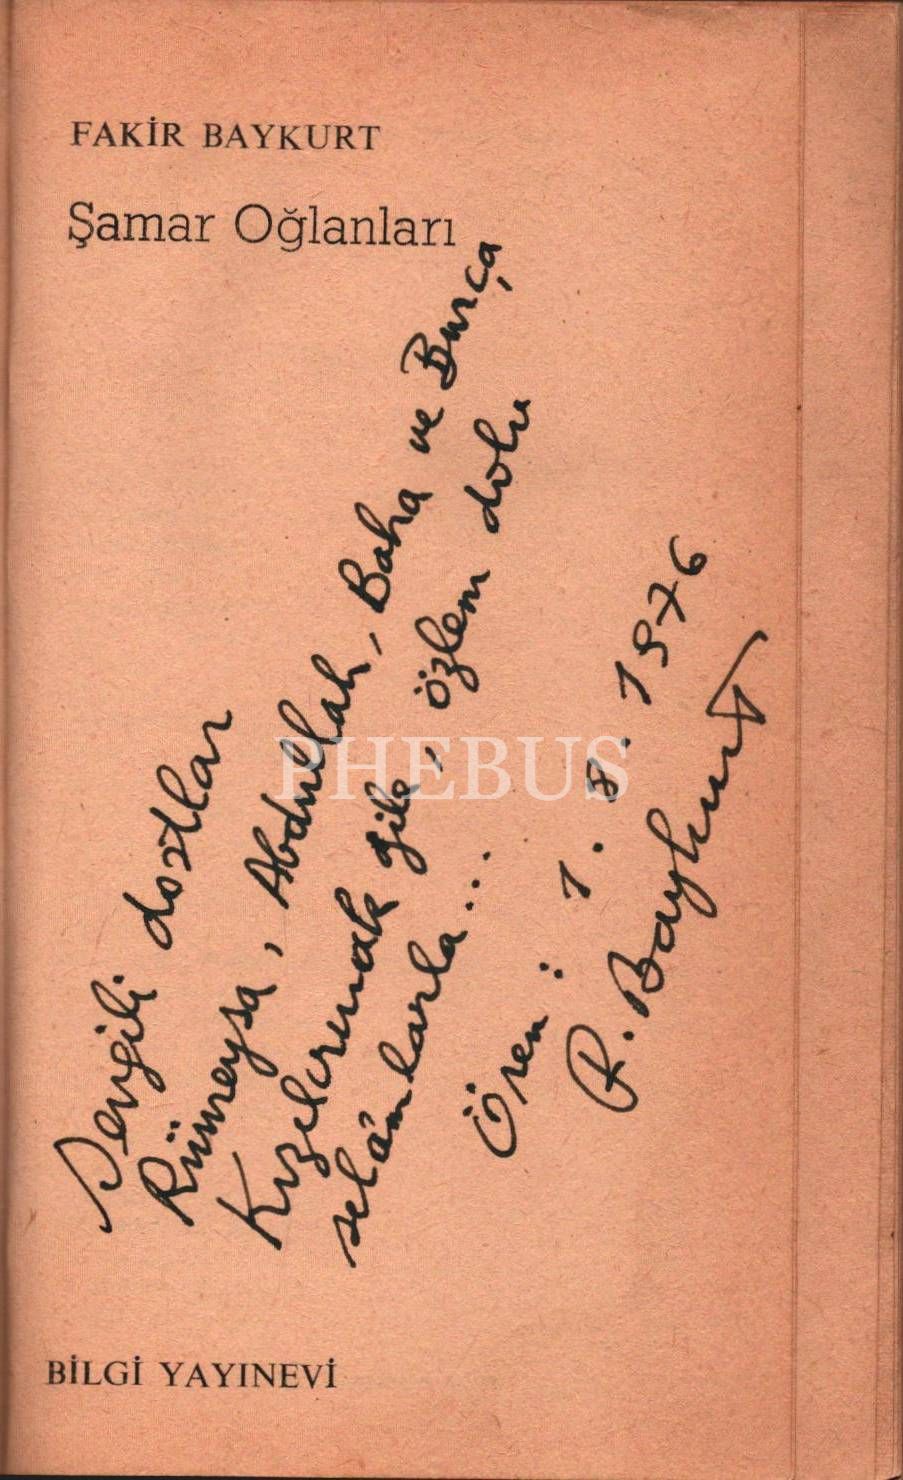 FAKİR BAYKURT
Şamar Oğlanları
Sevgili dostlar
Rümeysa, Abdullah, Baha ve Burça
Kızılırmak gile, özlem dolu
selâmlarla...
Ören: 1.8.1976
F. Baykurt
PHEBUS
BİLGİ YAYINEVİ